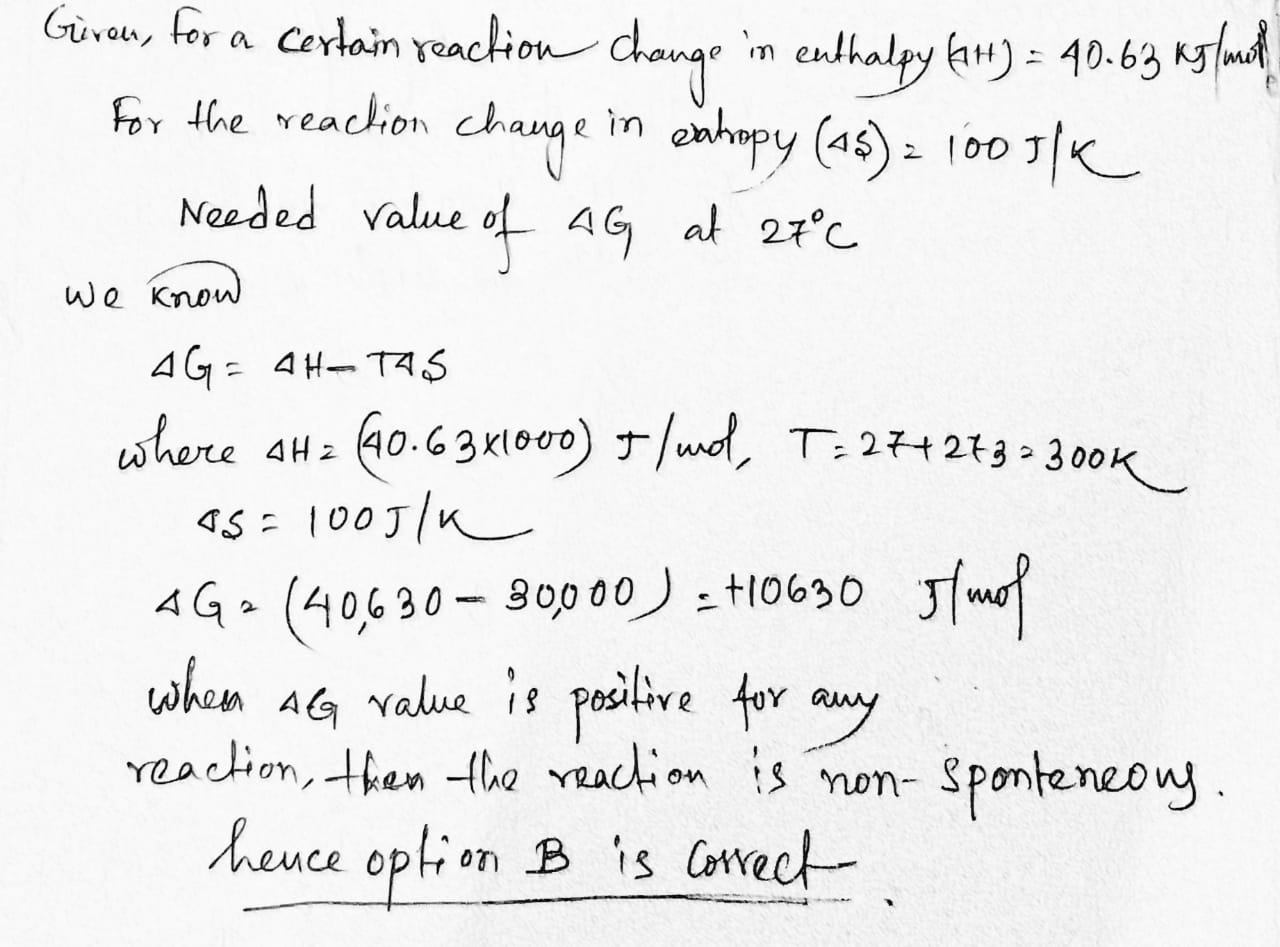 Given, for a certain reaction change in enthalpy (ΔH) = 40.63 KJ/mol
For the reaction change in entropy (ΔS) = 100 J/K
Needed value of ΔG at 27°C
we know
ΔG = ΔH - TΔS
where ΔH = (40.63×1000) J/mol, T = 27+273 = 300K
ΔS = 100 J/K
ΔG = (40,630 - 30,000) = +10630 J/mol
when ΔG value is positive for any
reaction, then the reaction is non-sponteneous.
hence option B is correct.